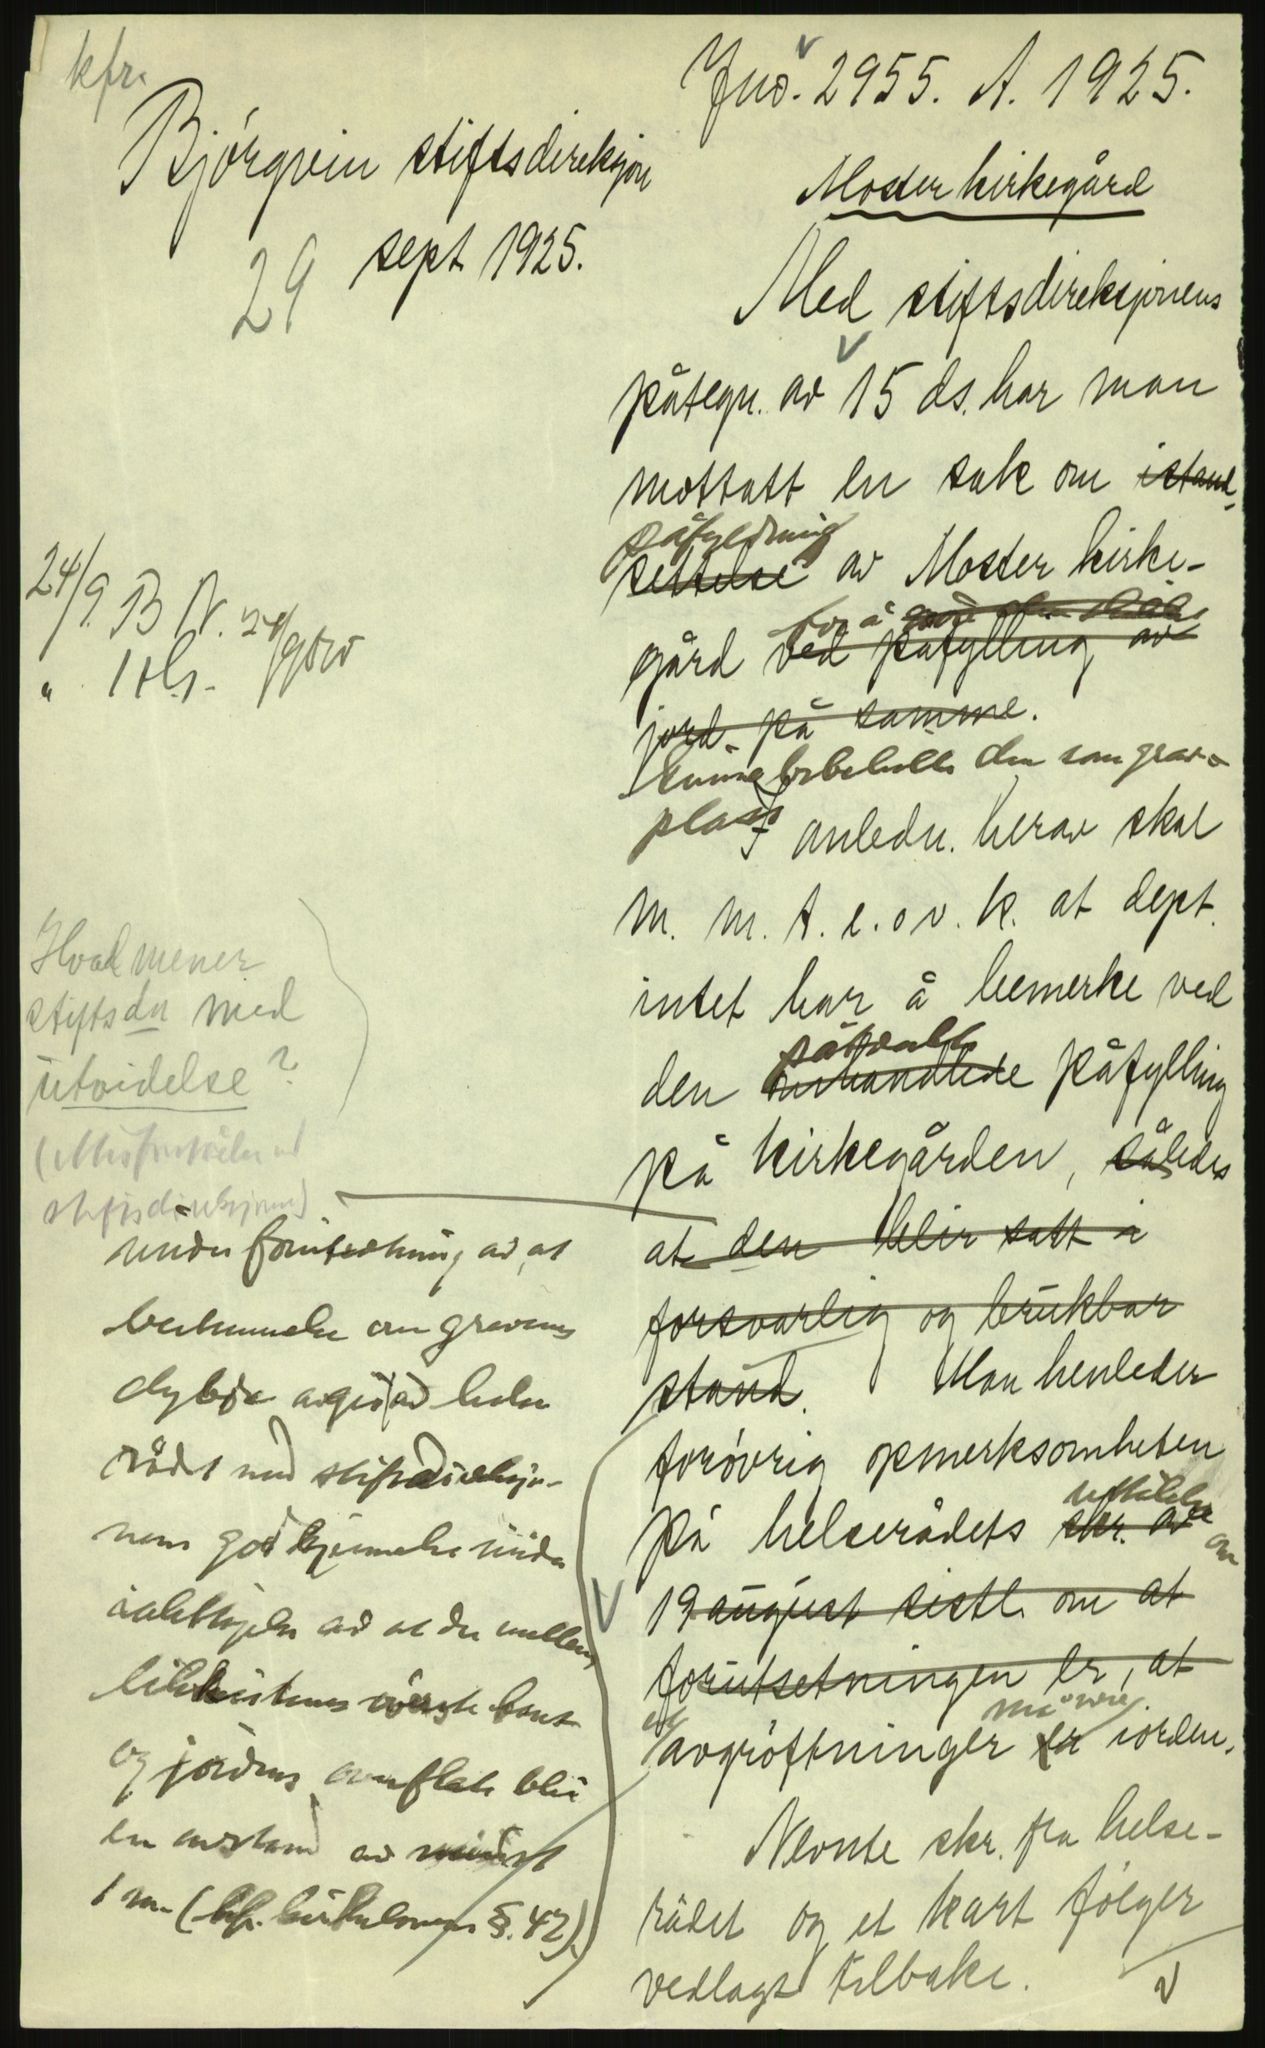 kfr.
Bjørgvin stiftsdireksjon
29 sept 1925.
24/9. B N.
Hvad mener
stiftsdn med
utvidelse?
under forutsetning av at
bestemmelse om gravens
dybde avgis av helse
rådet med stiftsdireksjo-
nens godkjennelse under
iakttagelse av at der mellem
likkistens øverste kant
og jordens overflate blir
en avstand av minst
1 m. (kfr. kirkelovens §. 42).
Jno. 2955. A. 1925.
Moster kirkegård
Med stiftsdireksjonens
påtegn. av 15 ds. har man
mottatt en sak om istand-
påfyldning
settelse av Moster kirke-
for å
gård ved påfylling av
jord på samme.
kunne bibeholde den som grav-
plass
I anledn. herav skal
m. m. t. e. o v. k. at dept.
intet har å bemerke ved
påtenkte
den omhandlede påfylling
på kirkegården, således
at den blir satt i
forsvarlig og brukbar
stand. Man henleder
forøvrig opmerksomheten
på helserådets skr. av
uttalelse om
19 august sistl. om at
forutsetningen er, at
avgrøftninger er iorden.
må være
Nevnte skr. fra helse-
rådet og et kart følger
vedlagt tilbake.